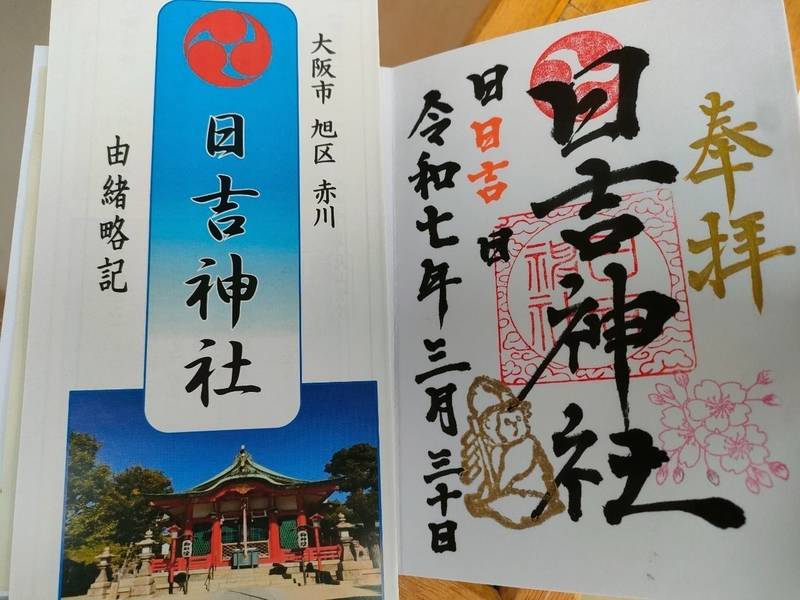 大阪市 旭区 赤川
日吉神社
由緒略記
奉拝
日吉神社
日日吉日
令和七年三月三十日